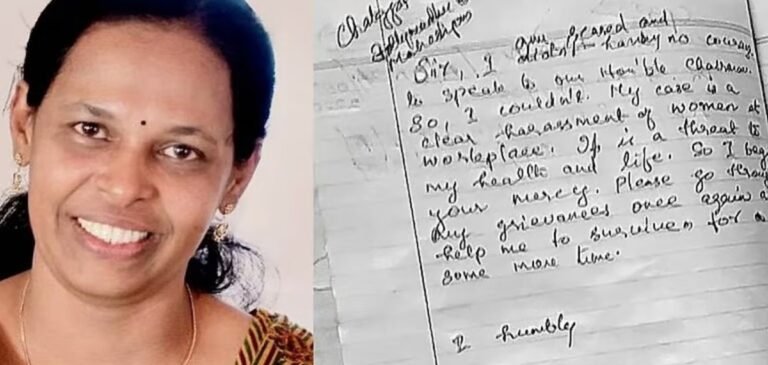 Sir, I am scared and
having no courage
to speak to our Hon'ble Chairman.
So, I couldn't. My case is a
clear harassment of women at
workplace. It is a threat to
my health and life. So I beg
your mercy. Please go throu
my grievances once again a
help me to survive for
some more time.
I humbly